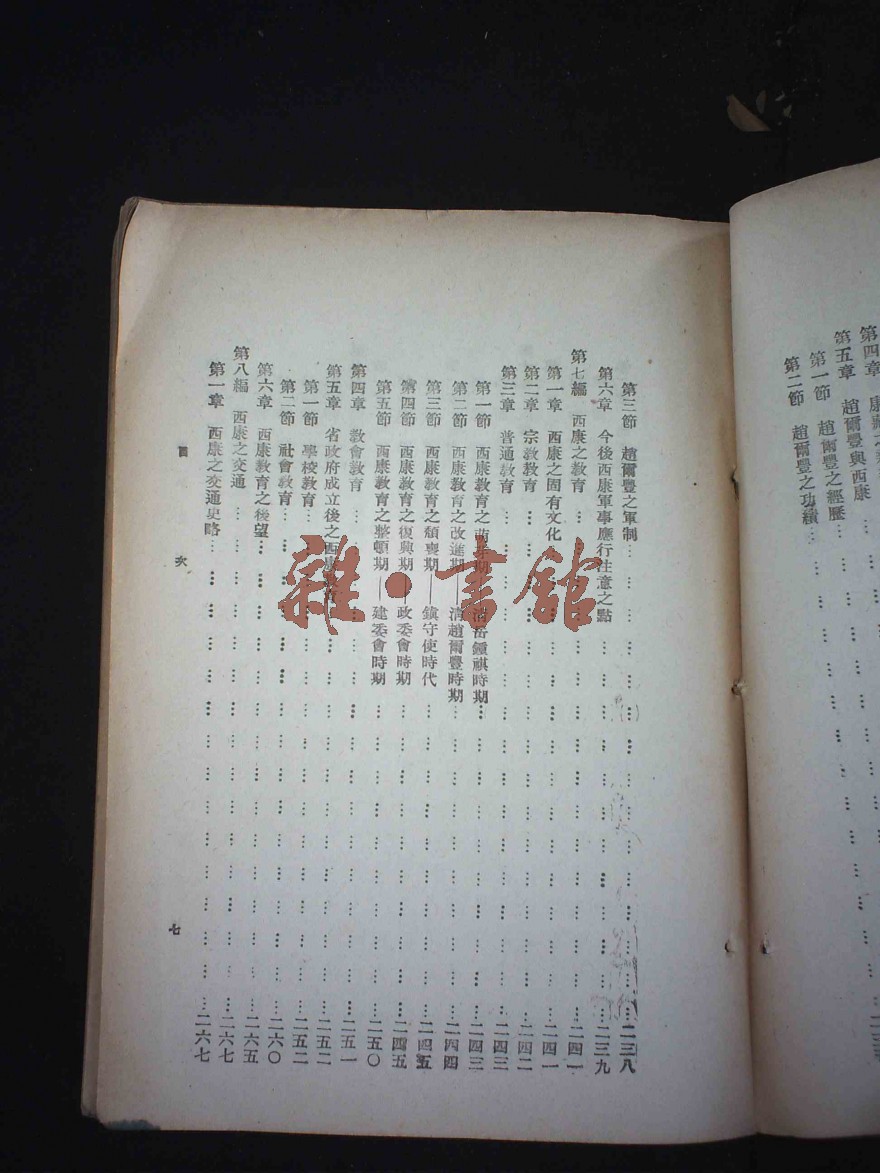 第四章 康藏之
第五章 趙爾豐與西康
第一節 趙爾豐之經歷…
第二節 趙爾豐之功績…
第三節 趙爾豐之軍制…二三八
第六章 今後西康軍事應行注意之點…二三九
第七編 西康之教育…二四一
第一章 西康之固有文化…二四一
第二章 宗教教育…二四二
第三章 普通教育…二四三
第一節 西康教育之萌芽期——清岳鍾祺時期…二四三
第二節 西康教育之改進期——清趙爾豐時期…二四四
第三節 西康教育之頹喪期——鎮守使時代…二四五
第四節 西康教育之復興期——政委會時期…二四五
第五節 西康教育之整頓期——建委會時期…二五〇
第四章 教會教育…二五一
第五章 省政府成立後之西康教育…二五二
第一節 學校教育…二五二
第二節 社會教育…二六〇
第六章 西康教育之後望…二六五
第八編 西康之交通…二六七
第一章 西康之交通史略…二六七
目 次
七
雜·書館